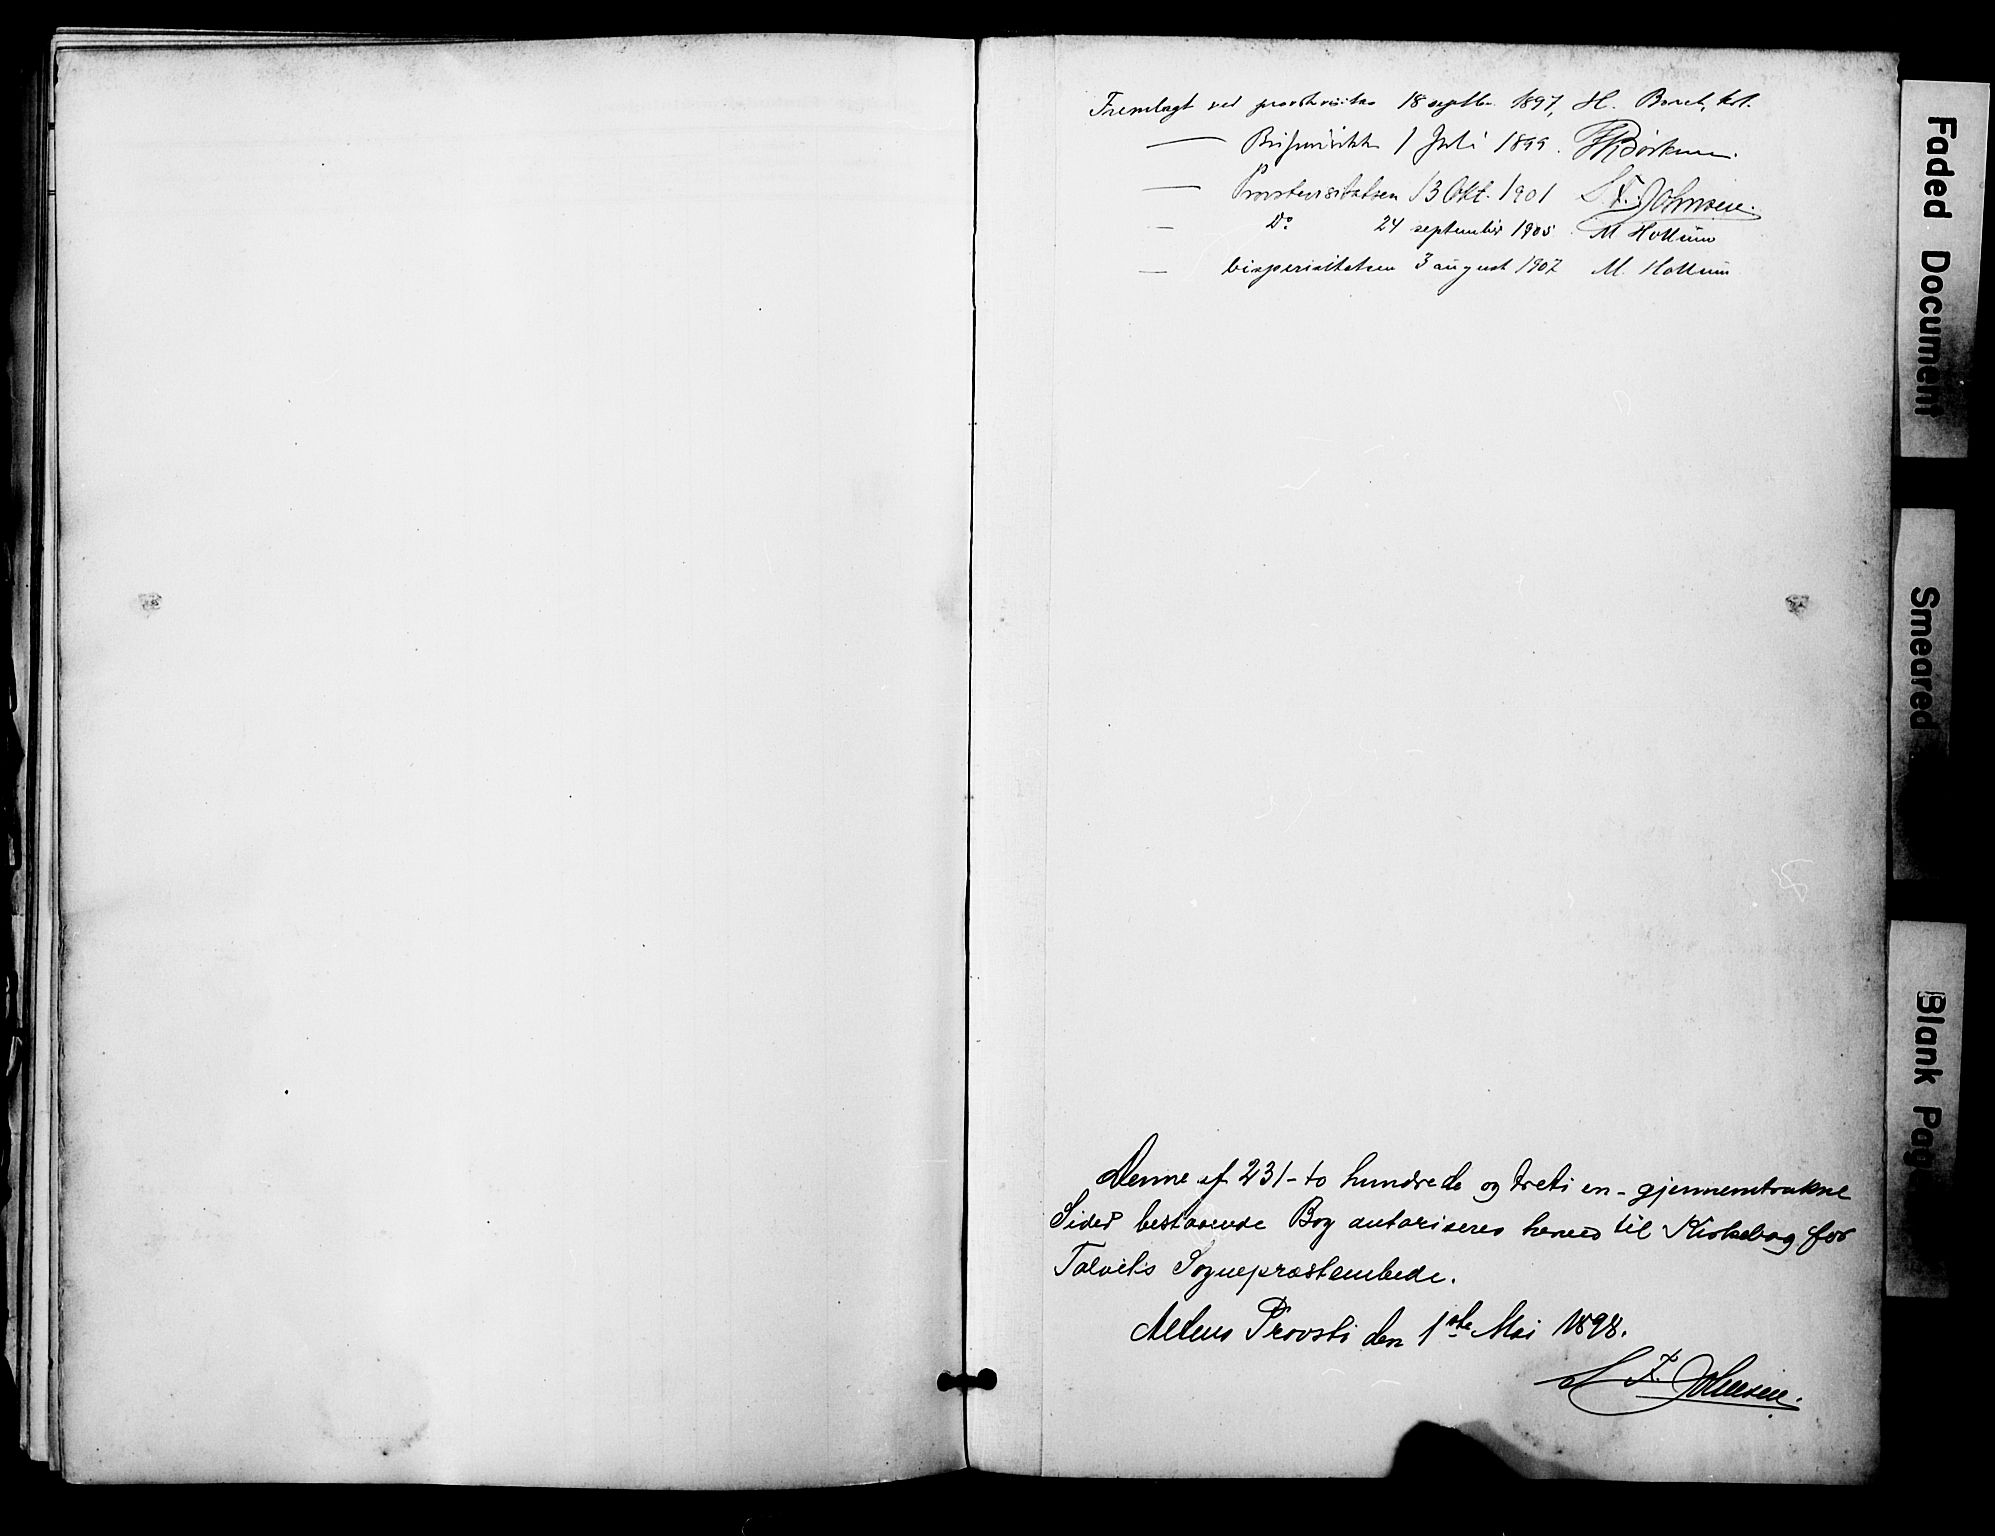 Fremlagt ved provstevisitas 18 septbr. 1897, H.
— 1 Juli 1899.
— Provstevisitatsen 13 Okt. 1901 S. F. Johnsen.
— Do 24 september 1905 M Hollum
— bispevisitatsen 3 august 1907 M. Hollum
Denne af 231 - to hundrede og treti en - gjennemtrukne
Sider bestaaende Bog autoriseres herved til Kirkebog for
Talviks Sognepræstembede.
Altens Provsti den 1ste Mai 1898.
S. F. Johnsen.
Faded Document
Smeared
Blank Pag